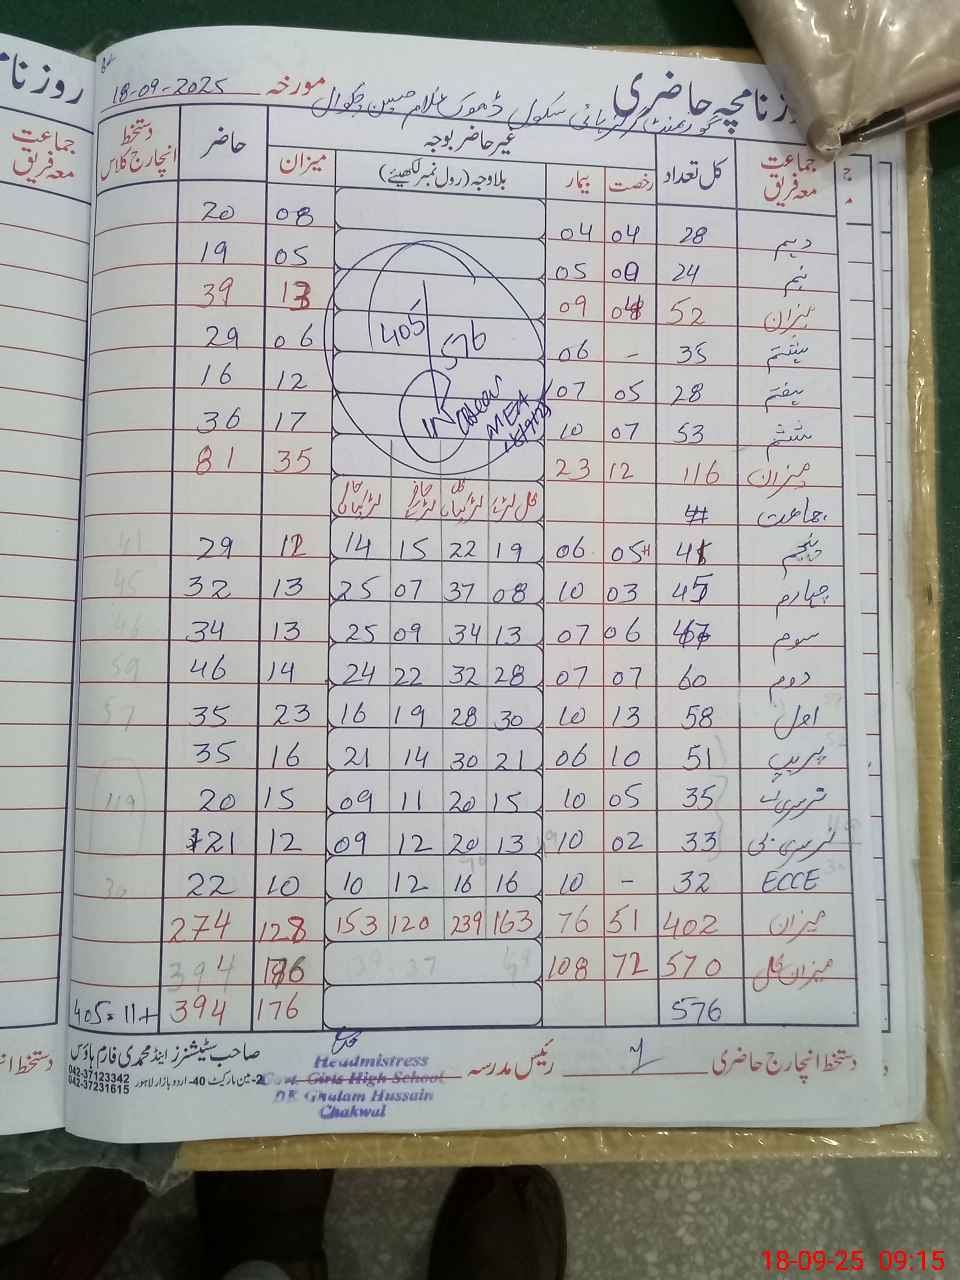 روزنامچہ حاضری مورخہ 18-09-2025
گورنمنٹ گرلز ہائی سکول ڈھوک غلام حسین چکوال
جماعت معہ فریق کل تعداد غیر حاضر بوجہ حاضر دستخط انچارج کلاس
رخصت بیمار بلاوجہ (رول نمبر لکھیئے) میزان
دہم 28 04 04 08 20
نہم 24 05 05 19
میزان 52 09 13 39
ہشتم 35 - 06 06 29
ہفتم 28 05 07 12 16
ششم 53 07 10 17 36
میزان 116 12 23 35 81
405
576
MEA
جماعت کل لڑکے کل لڑکیاں حاضر لڑکے حاضر لڑکیاں
پنجم 41 05 06 19 22 15 14 12 29
چہارم 45 03 10 08 37 07 25 13 32
سوم 47 06 07 13 34 09 25 13 34
دوم 60 07 07 28 32 22 24 14 46
اول 58 13 10 30 28 19 16 23 35
پریپ 51 10 06 21 30 14 21 16 35
نرسری اے 35 05 10 15 20 11 09 15 20
نرسری بی 33 02 10 13 20 12 09 12 21
ECCE 32 - 10 16 16 12 10 10 22
میزان 402 51 76 163 239 120 153 128 274
میزان کل 570 72 108 176 394
576 176 394 405=11+
دستخط انچارج حاضری رئیس مدرسہ
Headmistress
Govt. Girls High School
DK Ghulam Hussain
Chakwal
صاحب سٹیشنرز اینڈ محمدی فارم ہاؤس
2-مین مارکیٹ 40- اردو بازار لاہور 042-37123342
042-37231615
جماعت
معہ فریق
18-09-25 09:15